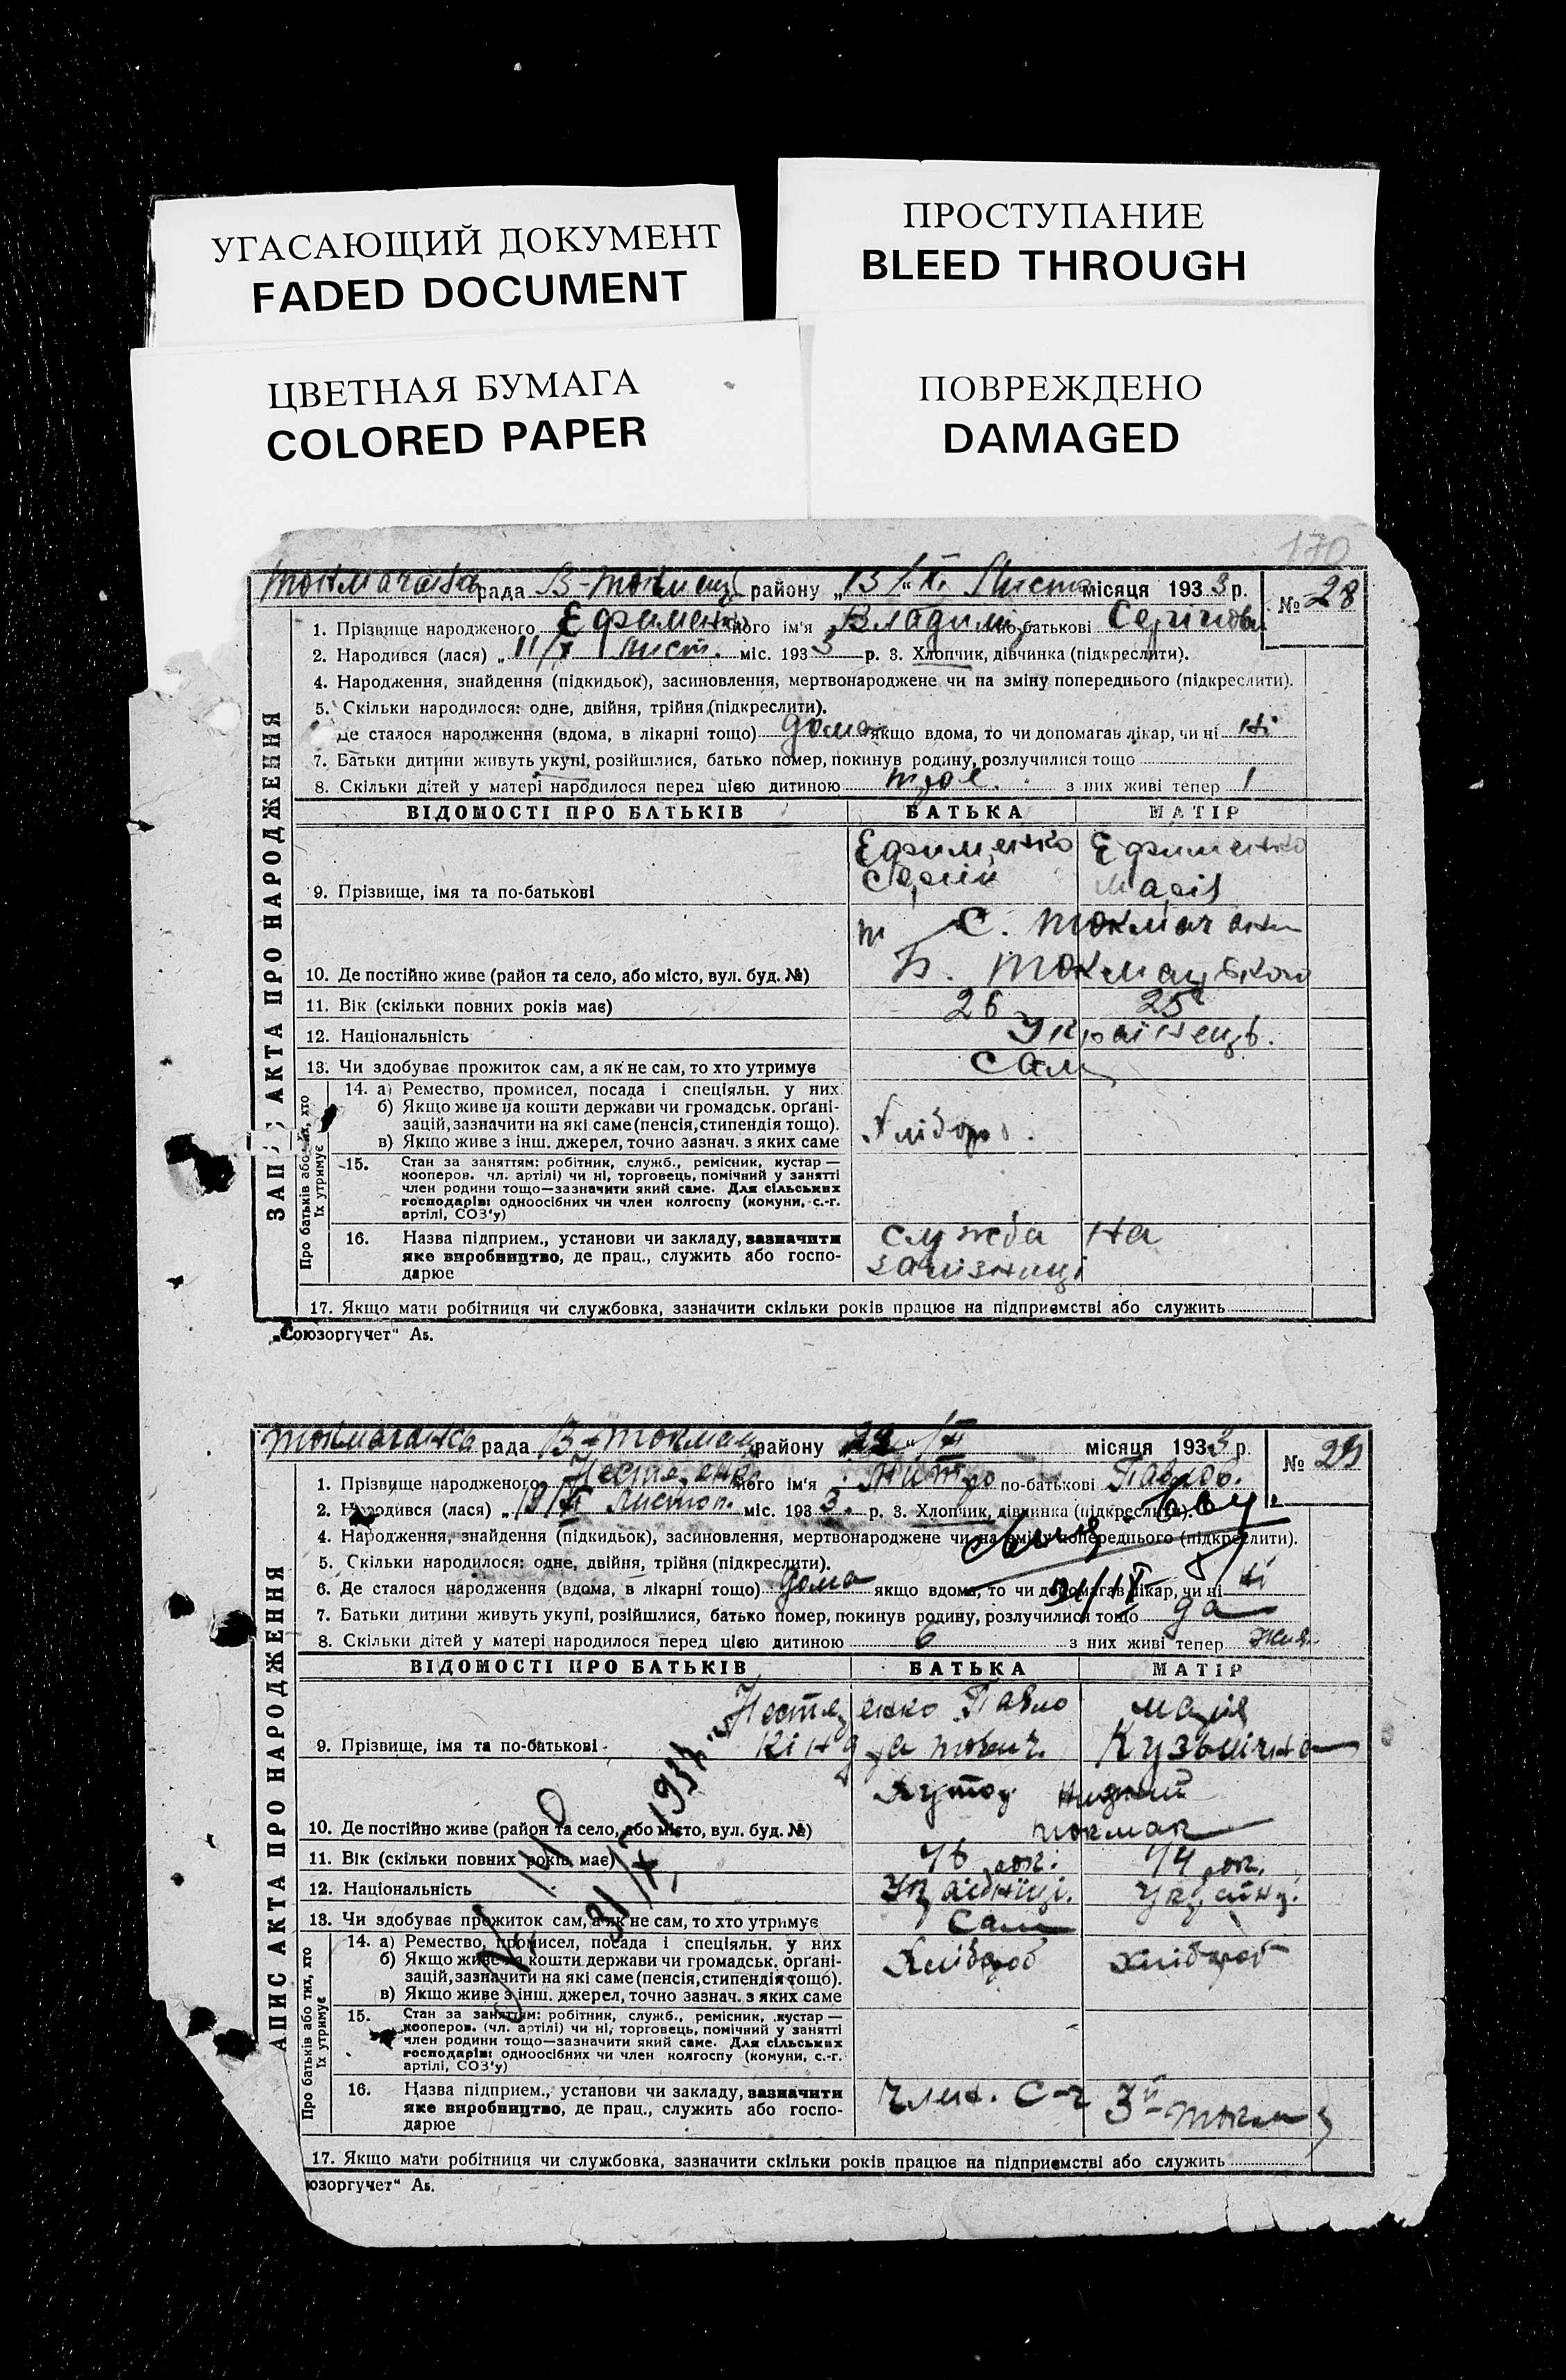 УГАСАЮЩИЙ ДОКУМЕНТ
FADED DOCUMENT
ПРОСТУПАНИЕ
BLEED THROUGH
ЦВЕТНАЯ БУМАГА
COLORED PAPER
ПОВРЕЖДЕНО
DAMAGED
170
рада В-Токмац району „13/“ XI Лист місяця 1933 р. № 28
1. Прізвище народженого Ефименко його ім'я Владимір по-батькові
2. Народився (лася) „11/X Лист. міс. 1933 р. 3. Хлопчик, дівчинка (підкреслити).
4. Народження, знайдення (підкидьок), засиновлення, мертвонароджене чи на зміну попереднього (підкреслити).
5. Скільки народилося: одне, двійня, трійня (підкреслити).
Де сталося народження (вдома, в лікарні тощо) дома якщо вдома, то чи допомагав лікар, чи ні Ні
7. Батьки дитини живуть укупі, розійшлися, батько помер, покинув родину, розлучилися тощо
8. Скільки дітей у матері народилося перед цією дитиною троє. з них живі тепер 1
ВІДОМОСТІ ПРО БАТЬКІВ БАТЬКА МАТІР
Ефименко Ефименко
9. Прізвище, імя та по-батькові Сергій Марія
С.
10. Де постійно живе (район та село, або місто, вул. буд. №) Б. Токмацького
11. Вік (скільки повних років має) 26 25
12. Національність Українець.
13. Чи здобуває прожиток сам, а як не сам, то хто утримує Сам
14. а) Ремество, промисел, посада і спеціяльн. у них
б) Якщо живе на кошти держави чи громадськ. органі-
зацій, зазначити на які саме (пенсія, стипендія тощо).
в) Якщо живе з інш. джерел, точно зазнач. з яких саме Хлібороб.
15. Стан за заняттям: робітник, служб., ремісник, кустар —
кооперов. чл. артілі) чи ні, торговець, помічний у занятті
член родини тощо—зазначити який саме. Для сільських
господарів: одноосібних чи член колгоспу (комуни, с.-г.
артілі, СОЗ'у)
16. Назва підприєм., установи чи закладу, зазначити служба на
яке виробництво, де прац., служить або госпо- залізниці
дарює
17. Якщо мати робітниця чи службовка, зазначити скільки років працює на підприємстві або служить
ЗАПИС АКТА ПРО НАРОДЖЕННЯ
Про батьків або тих, хто
їх утримує
„Союзоргучет“ Аб.
рада В-Токмац району „22“ /XI місяця 1933 р. № 29
1. Прізвище народженого Нестеренко його ім'я по-батькові Павлов.
2. Народився (лася) Листоп. міс. 1933. р. 3. Хлопчик, дівчинка (підкреслити).
4. Народження, знайдення (підкидьок), засиновлення, мертвонароджене чи на зміну попереднього (підкреслити).
5. Скільки народилося: одне, двійня, трійня (підкреслити).
6. Де сталося народження (вдома, в лікарні тощо) дома якщо вдома, то чи допомагав лікар, чи ні ні
7. Батьки дитини живуть укупі, розійшлися, батько помер, покинув родину, розлучилися тощо да
8. Скільки дітей у матері народилося перед цією дитиною 6 з них живі тепер
ВІДОМОСТІ ПРО БАТЬКІВ БАТЬКА МАТІР
Нестеренко Павло Марія
9. Прізвище, імя та по-батькові Кіндратович. Кузьмінна
10. Де постійно живе (район та село, або місто, вул. буд. №) Токмак
11. Вік (скільки повних років має) 46 рок. 44 рок.
12. Національність
13. Чи здобуває прожиток сам, а як не сам, то хто утримує Сам
14. а) Ремество, промисел, посада і спеціяльн. у них Хлібороб хлібороб
б) Якщо живе на кошти держави чи громадськ. органі-
зацій, зазначити на які саме (пенсія, стипендія тощо).
в) Якщо живе з інш. джерел, точно зазнач. з яких саме
15. Стан за заняттям: робітник, служб., ремісник, кустар —
кооперов. (чл. артілі) чи ні, торговець, помічний у занятті
член родини тощо—зазначити який саме. Для сільських
господарів: одноосібних чи член колгоспу (комуни, с.-г.
артілі, СОЗ'у)
16. Назва підприєм., установи чи закладу, зазначити Член. С-г
яке виробництво, де прац., служить або госпо-
дарює
17. Якщо мати робітниця чи службовка, зазначити скільки років працює на підприємстві або служить
АПИС АКТА ПРО НАРОДЖЕННЯ
Про батьків або тих, хто
їх утримує
юзоргучет“ Аб.